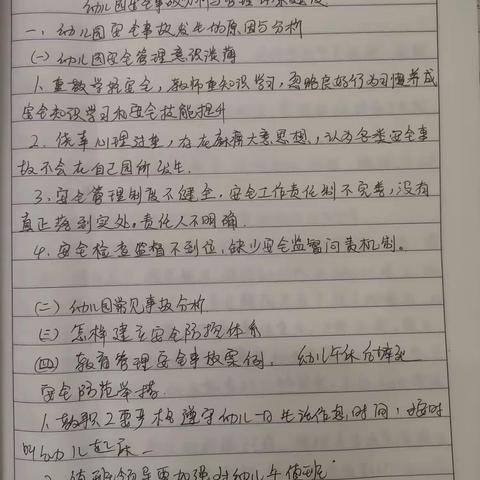 幼儿园安全事故分析与管理体系建设
一、幼儿园安全事故发生的原因与分析
(一) 幼儿园安全管理意识淡薄
1. 重教学轻安全,教师重知识学习,忽略良好行为习惯养成
安全知识学习和安全技能提升
2. 侥幸心理过重,存在麻痹大意思想,认为各类安全事
故不会在自己园所发生.
3. 安全管理制度不健全,安全工作责任制不完善,没有
真正落到实处.责任人不明确.
4. 安全检查监督不到位,缺少安全监督问责机制。
(二) 幼儿园常见事故分析
(三) 怎样建立安全防控体系
(四) 教育管理安全事故案例. 幼儿午休
安全防范举措.
1. 教职工要严格遵守幼儿一日生活作息时间,按时
叫幼儿起床.
2. 值班领导要加强对幼儿午值班